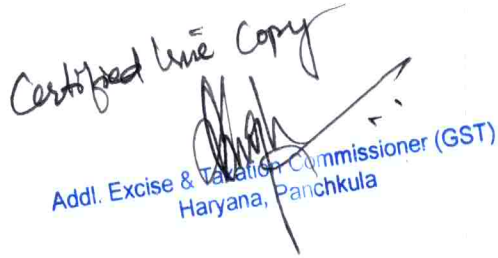 Certified true Copy
Addl. Excise & Taxation Commissioner (GST)
Haryana, Panchkula